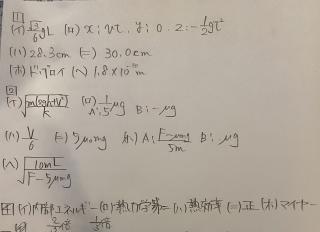 1
(イ) √3/6 gL (ロ) x: vt, y: 0, z: -1/2gt²
(ハ) 28.3cm (ニ) 30.0cm
(ホ) ド・ブロイ (ヘ) 1.8×10⁻¹⁰m
2
(イ) (ロ) A: 1/5μg B: -μg
(ハ) V/6 (ニ) 5μmg (ホ) A: F-5μmg/5m B: μg
(ヘ) √10mL/F-5μmg
(イ) 内部エネルギー (ロ) 熱力学第一 (ハ) 熱効率 (ニ) 正 (ホ) マイヤー